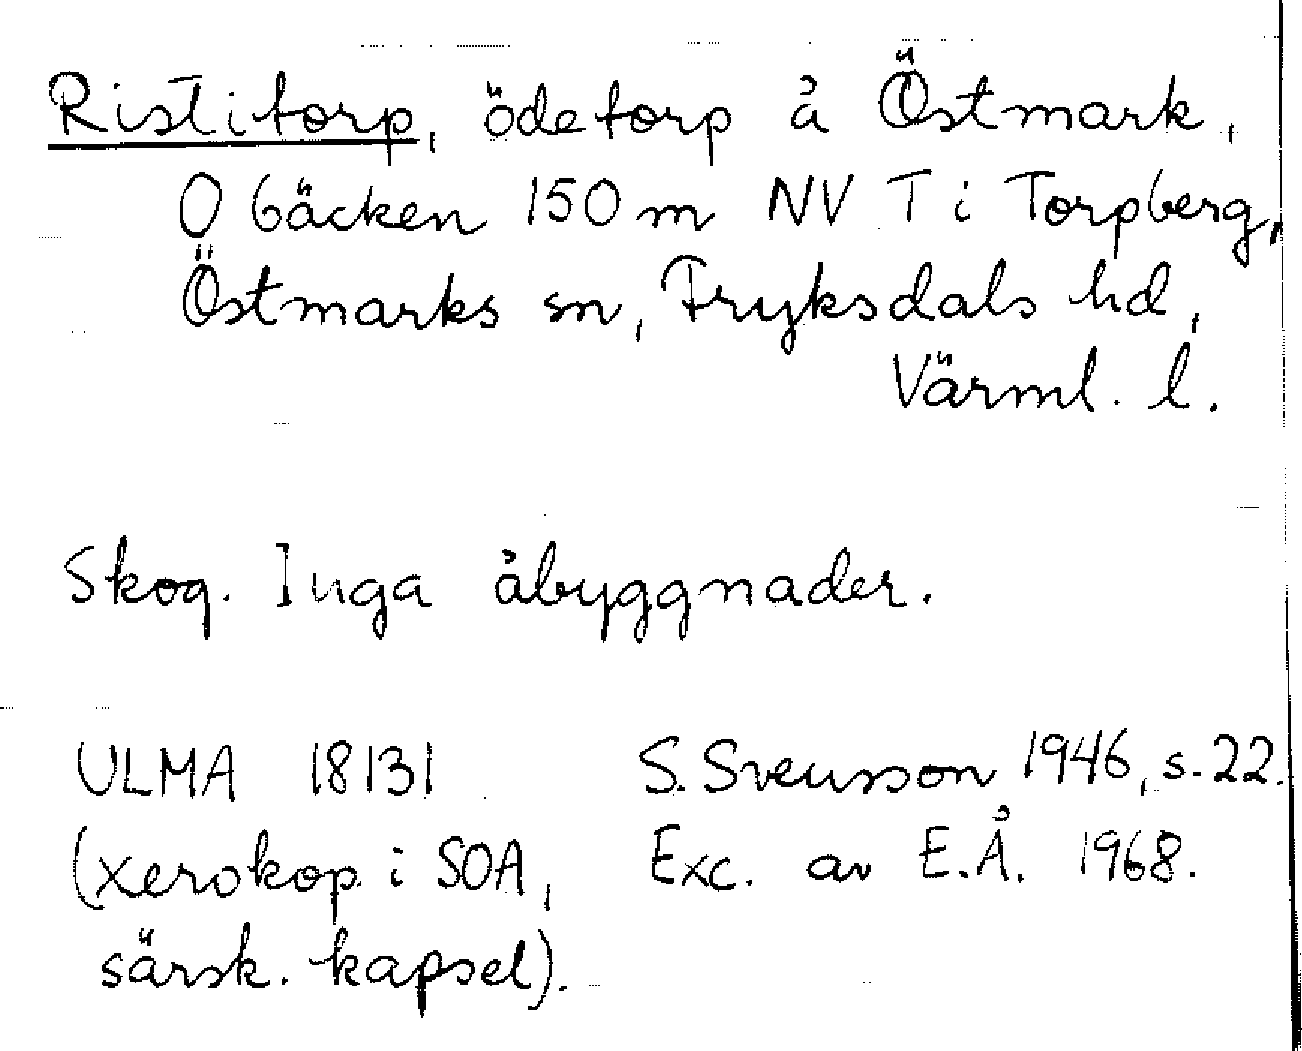 Ristitorp, ödetorp å Östmark,
O bäcken 150 m NV T i Torpberg,
Östmarks sn, Fryksdals hd,
Värml. l.
Skog. Inga åbyggnader.
ULMA 18131 S. Svensson 1946, s. 22.
(xerokop. i SOA, Exc. av E.Å. 1968.
särsk. kapsel).